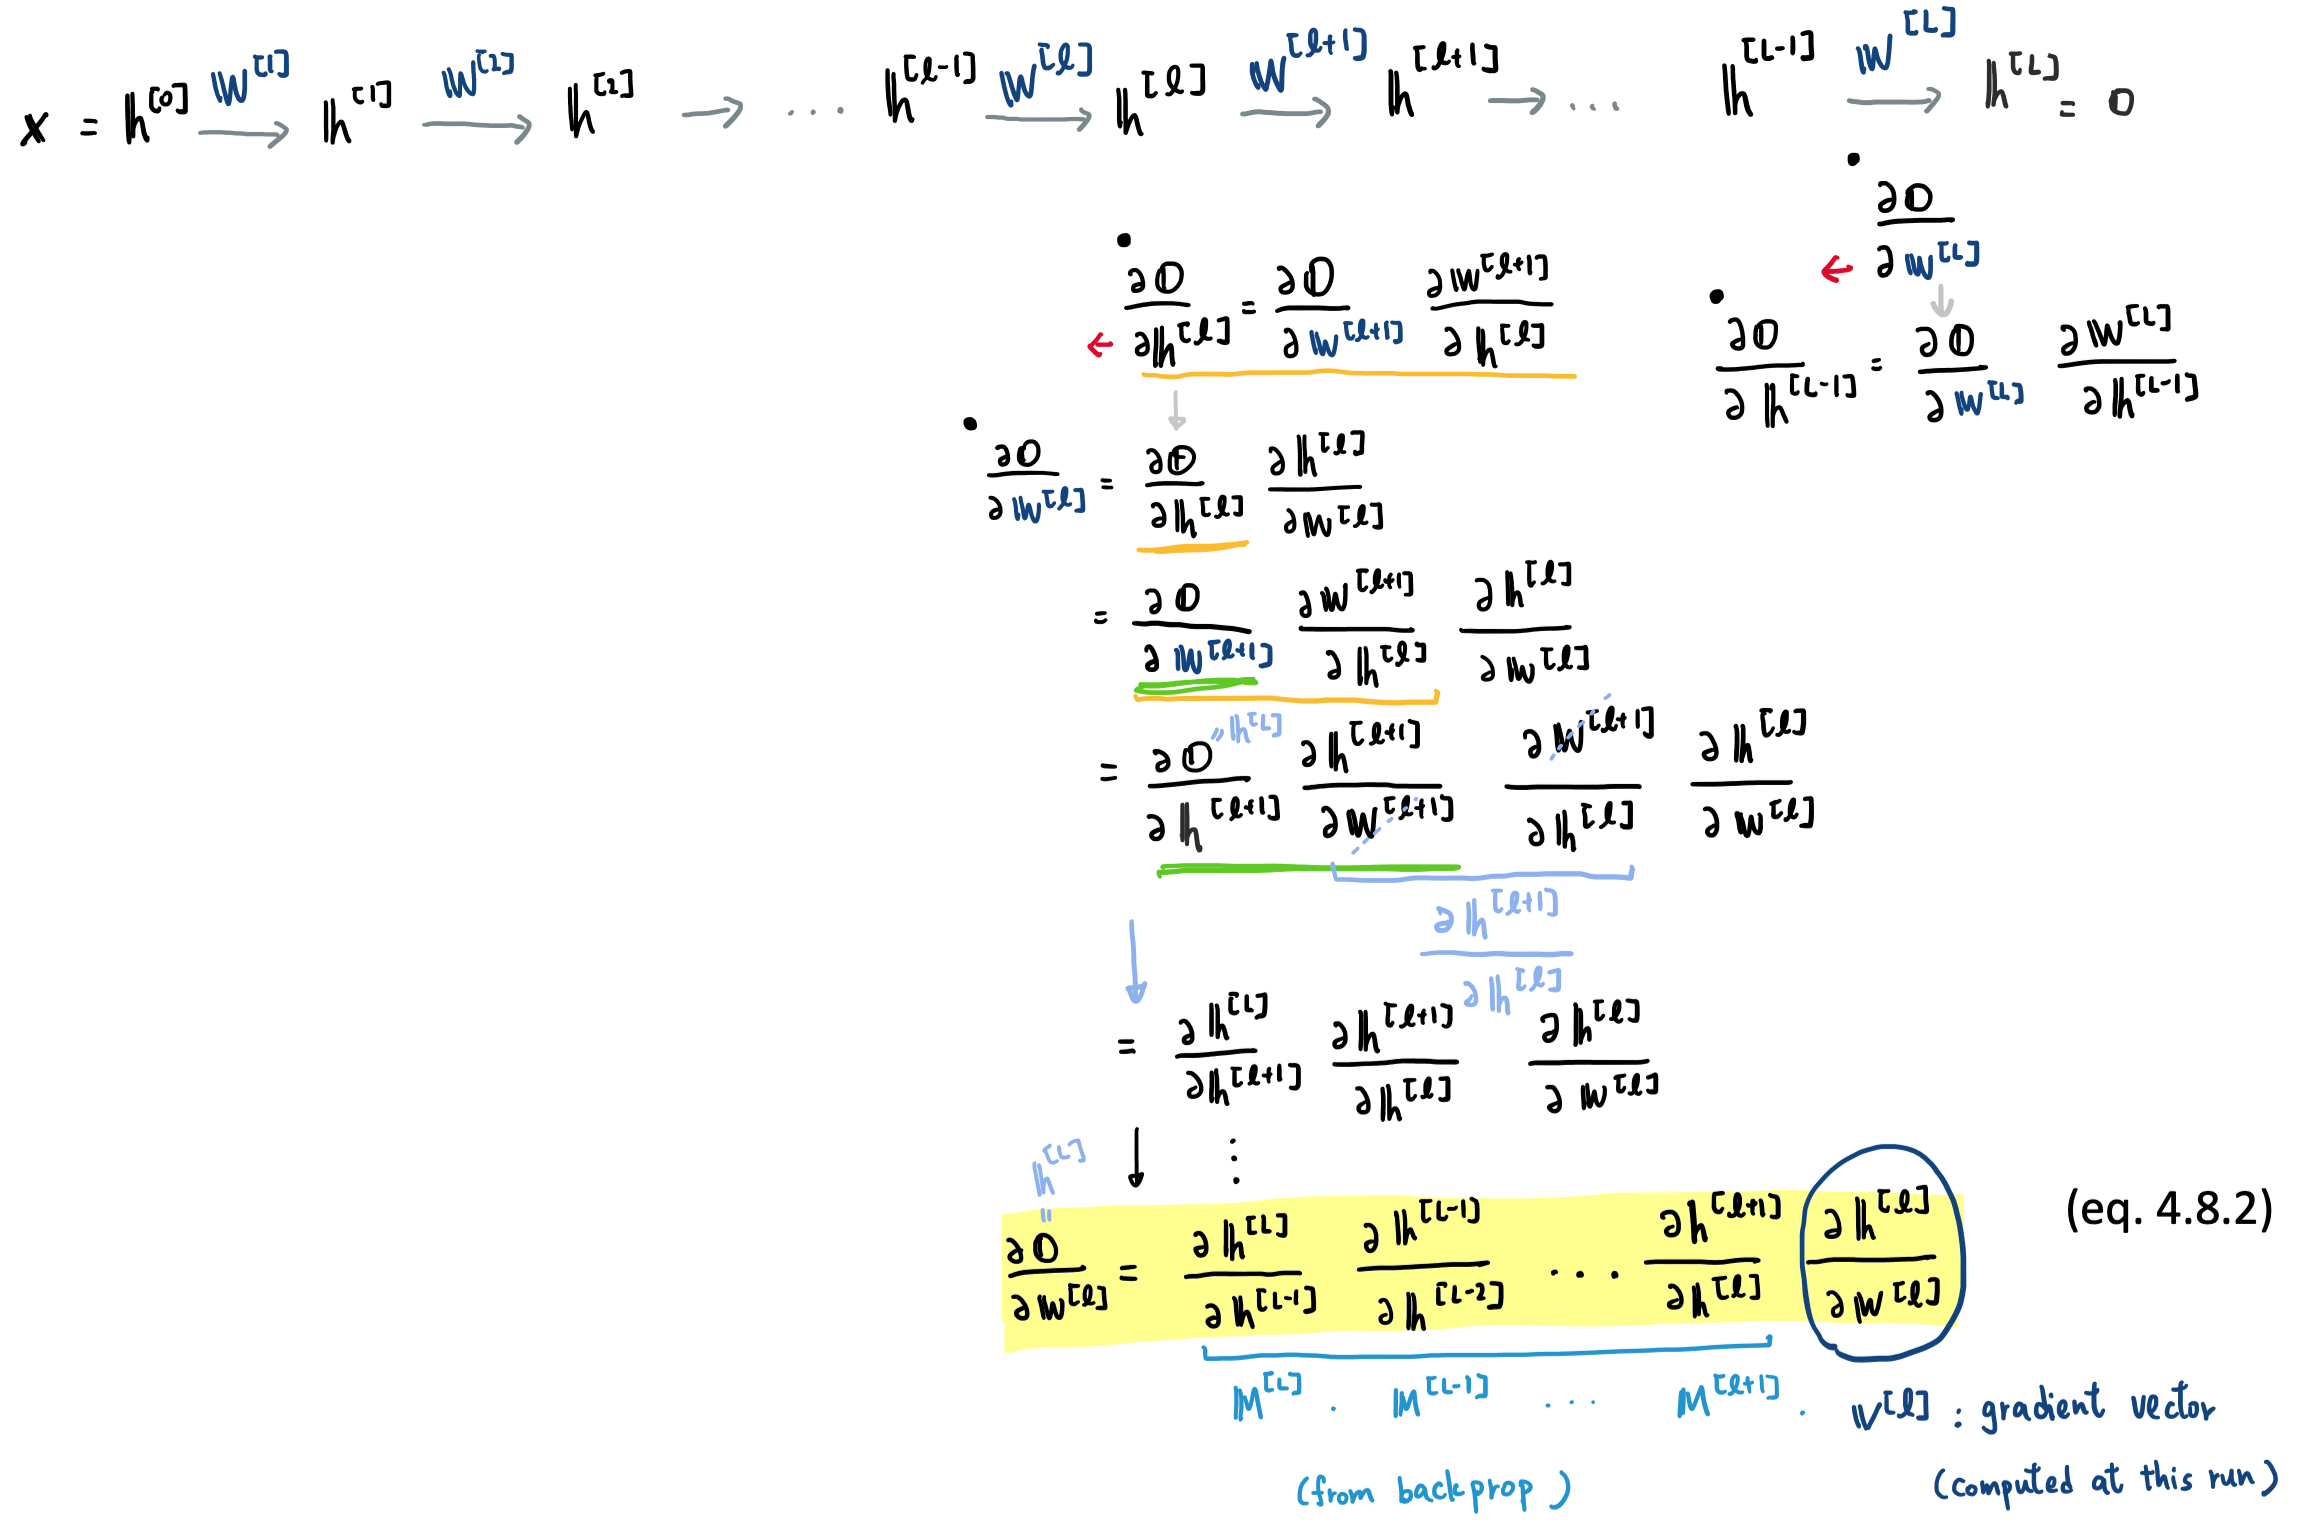 x = h^[0] W^[1] → h^[1] W^[2] → h^[2] → ... h^[l-1] W^[l] → h^[l] W^[l+1] → h^[l+1] → ... h^[L-1] W^[L] → h^[L] = o
• ∂o/∂W^[L]
• ∂o/∂h^[l] = ∂o/∂W^[l+1] ∂W^[l+1]/∂h^[l]
← ←
• ∂o/∂h^[L-1] = ∂o/∂W^[L] ∂W^[L]/∂h^[L-1]
• ∂o/∂W^[l] = ∂o/∂h^[l] ∂h^[l]/∂W^[l]
= ∂o/∂W^[l+1] ∂W^[l+1]/∂h^[l] ∂h^[l]/∂W^[l]
" h^[L]
= ∂o/∂h^[l+1] ∂h^[l+1]/∂W^[l+1] ∂W^[l+1]/∂h^[l] ∂h^[l]/∂W^[l]
∂h^[l+1]/∂h^[l]
= ∂h^[L]/∂h^[l+1] ∂h^[l+1]/∂h^[l] ∂h^[l]/∂W^[l]
↓ ⋮
h^[L]
"
∂o/∂W^[l] = ∂h^[L]/∂h^[L-1] ∂h^[L-1]/∂h^[L-2] ... ∂h^[l+1]/∂h^[l] ∂h^[l]/∂W^[l] (eq. 4.8.2)
M^[L] . M^[L-1] ... M^[l+1] . v^[l] : gradient vector
(from backprop) (computed at this run)